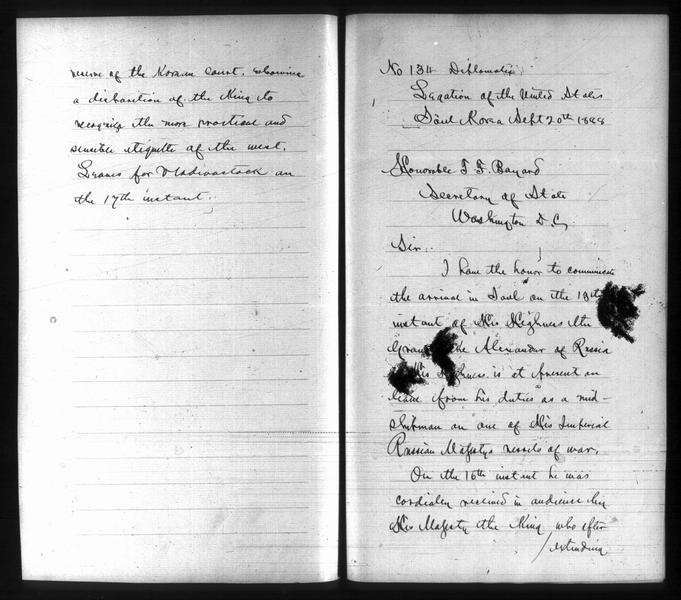 reserve of the Korean Court, showing
a disposition of the King to
recognize the more practical and
sensible etiquette of the west.
Leaves for Vladivostock on
the 17th instant.
No 134 Diplomatic
Legation of the United States
Söul Korea Sept 20th 1888
Honorable T F. Bayard
Secretary of State
Washington D. C,
Sir:
I have the honor to communicate
the arrival in Söul on the
instant of His Highness the
the Alexander of Russia
His Highness is at present on
leave from his duties as a mid-
shipman on one of His Imperial
Russian Majestys vessels of war.
On the 16th instant he was
cordialy received in audience by
His Majesty the King who after
/extending